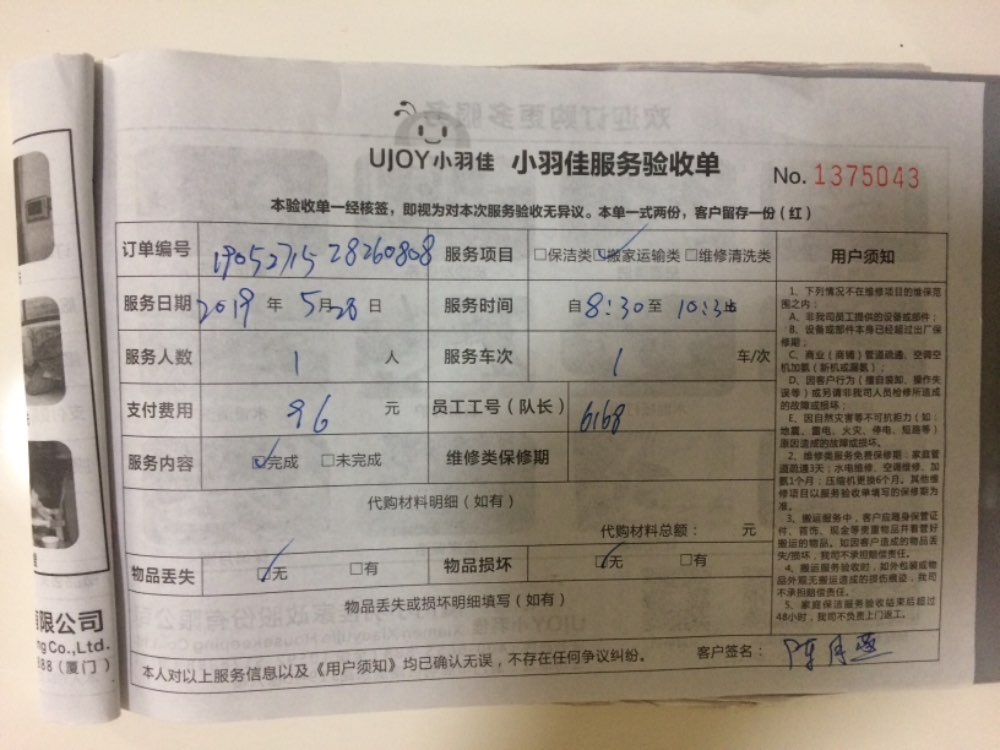 UJOY小羽佳 小羽佳服务验收单
No. 1375043
本验收单一经核签，即视为对本次服务验收无异议。本单一式两份，客户留存一份（红）
订单编号 1905271528260808 服务项目 □保洁类 ☑搬家运输类 □维修清洗类
服务日期 2019 年 5 月 28 日 服务时间 自 8:30 至 10:30
服务人数 1 人 服务车次 1 车/次
支付费用 96 元 员工工号（队长） 6168
服务内容 ☑完成 □未完成 维修类保修期
代购材料明细（如有）
代购材料总额： 元
物品丢失 ☑无 □有 物品损坏 ☑无 □有
物品丢失或损坏明细填写（如有）
本人对以上服务信息以及《用户须知》均已确认无误，不存在任何争议纠纷。 客户签名：
用户须知
1、下列情况不在维修项目的维保范
围之内：
A、非我司员工提供的设备或部件；
B、设备或部件本身已经超过出厂保
修期；
C、商业（商铺）管道疏通、空调空
机加氨（新机或漏氨）；
D、因客户行为（擅自装卸、操作失
误等）或另请非我司人员检修所造成
的故障或损坏；
E、因自然灾害等不可抗拒力（如：
地震、雷电、火灾、停电、短路等）
原因造成的故障或损坏。
2、维修类服务免费保修期：家庭管
道疏通3天；水电维修、空调维修、加
氨1个月；压缩机更换6个月。其他维
修项目以服务验收单填写的保修期为
准。
3、搬运服务中，客户应随身保管证
件、首饰、现金等贵重物品并看管好
搬运的物品。如因客户造成的物品丢
失/损坏，我司不承担赔偿责任。
4、搬运服务验收时，如外包装或物
品外观无搬运造成的损伤痕迹，我司
不承担赔偿责任。
5、家庭保洁服务验收结束后超过
48小时，我司不负责上门返工。
有限公司
ng Co.,Ltd.
888（厦门）